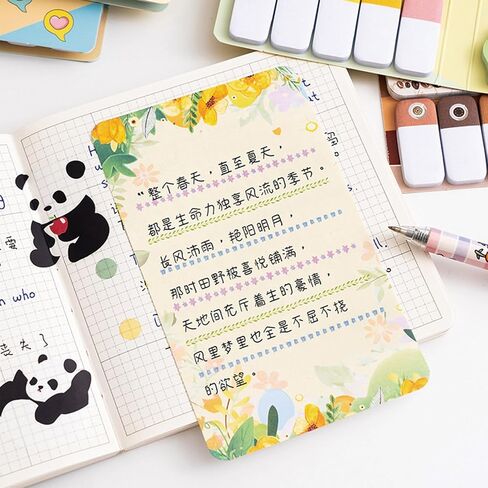 "整个春天，直至夏天，
都是生命力独享风流的季节。
长风沛雨，艳阳明月，
那时田野被喜悦铺满，
天地间充斥着生的豪情，
风里梦里也全是不屈不挠
的欲望。
who
失了